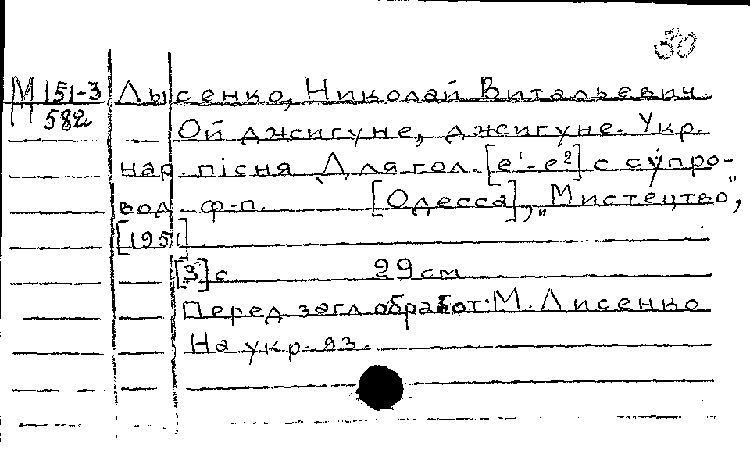 30
М 151-3 Лысенко, Николай Витальевич.
582 Ой джигуне, джигуне. Укр.
нар. пісня Для гол. [e¹-e²] с сопро-
вод. ф-п. [Одесса], „Мистецтво",
[195]
[3] с 29 см
Перед загл. обработ: М. Лисенко
На укр. яз.